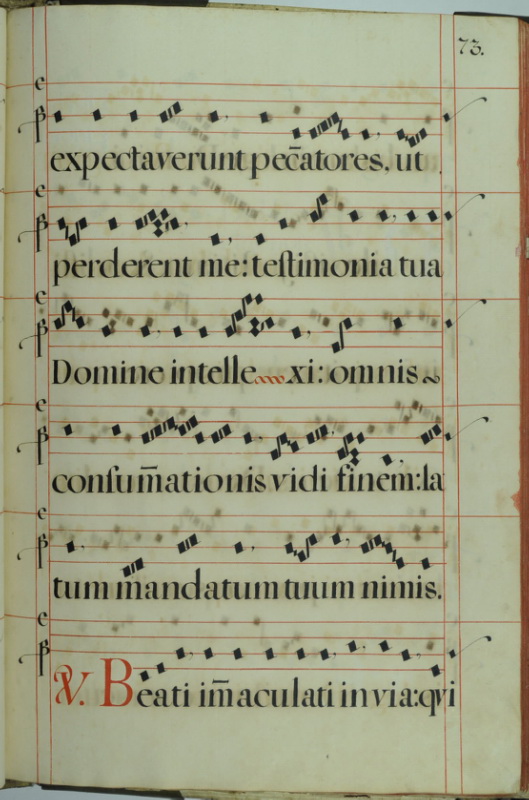 73.
expectaverunt pec̄atores, ut
perderent me: teſtimonia tua
Domine intelle xi: omnis
conſum̄ationis vidi finem: la
tum mandatum tuum nimis.
V. Beati im̄aculati in via: qui